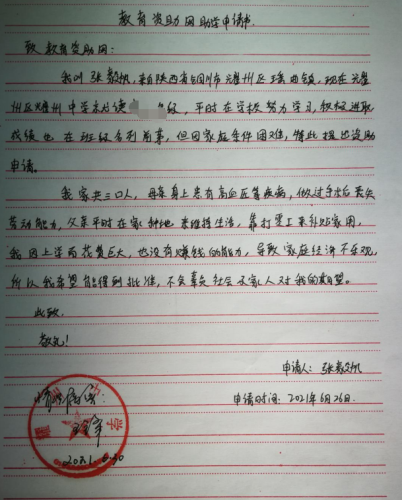 教育资助网助学申请书
致教育资助网：
我叫张毅帆，来自陕西省铜川市耀州区瑶曲镇，现在耀
州区耀州中学就读 级，平时在学校努力学习，积极进取
成绩也在班级名列前茅，但因家庭条件困难，特此提出资助
申请。
我家共三口人，母亲身上患有高血压等疾病，做过手术后丧失
劳动能力，父亲平时在家种地来维持生活，靠打零工来补贴家用，
我因上学而花费巨大，也没有赚钱的能力，导致家庭经济不乐观，
所以我希望能得到批准，不会辜负社会及家人对我的期望。
此致
敬礼！
申请人：张毅帆
情况属实：
申请时间：2021年6月26日.
2021.6.30